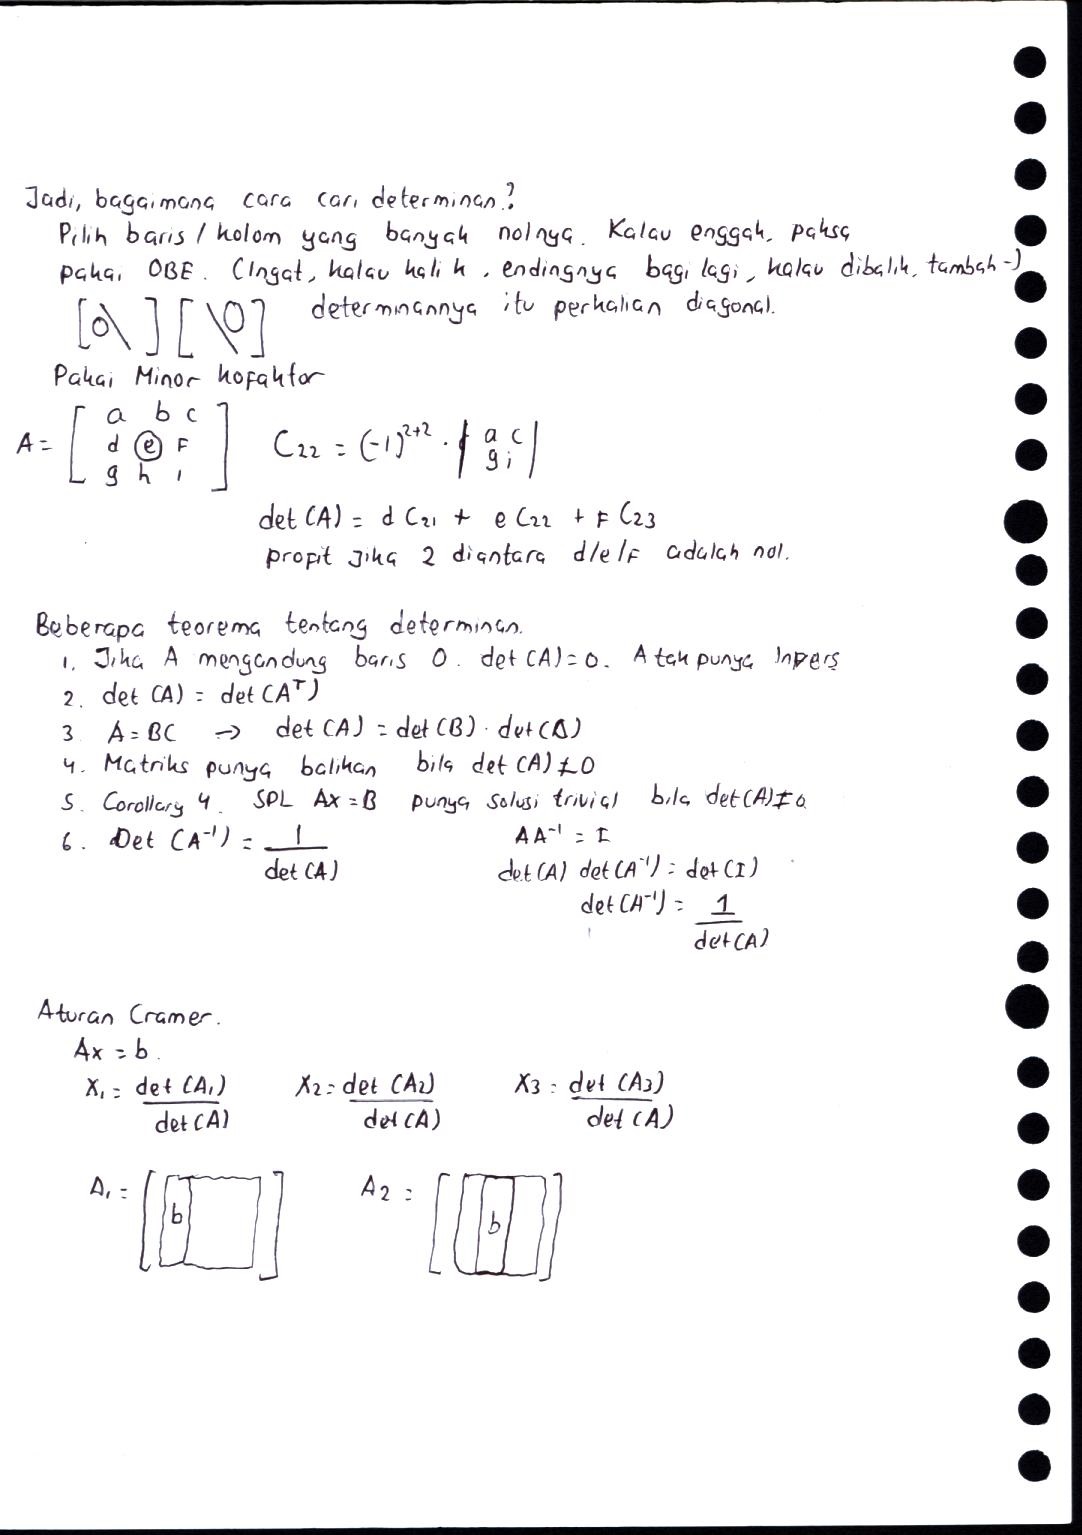 Jadi, bagaimana cara cari determinan?
Pilih baris / kolom yang banyak nolnya. Kalau enggak, paksa
pakai OBE. (Ingat, kalau kali k, endingnya bagi lagi, kalau dibalik, tambah -)
[0\ ] [ \0] determinannya itu perkalian diagonal.
Pakai Minor kofaktor
A = [ a b c
d e F
g h i ]
C22 = (-1)^2+2 · | a c
g i |
det (A) = d C21 + e C22 + F C23
profit jika 2 diantara d/e/F adalah nol.
Beberapa teorema tentang determinan.
1. Jika A mengandung baris 0. det (A) = 0. A tak punya Invers
2. det (A) = det (A^T)
3 A = BC → det (A) = det (B) · det (C)
4. Matriks punya balikan bila det (A) ≠ 0
5. Corollary 4. SPL Ax = B punya solusi trivial bila det (A) ≠ 0
6. Det (A^-1) = 1 / det (A)
AA^-1 = I
det (A) det (A^-1) = det (I)
det (A^-1) = 1 / det (A)
Aturan Cramer.
Ax = b.
X1 = det (A1) / det (A) X2 = det (A2) / det (A) X3 = det (A3) / det (A)
A1 = [ b ] A2 = [ b ]